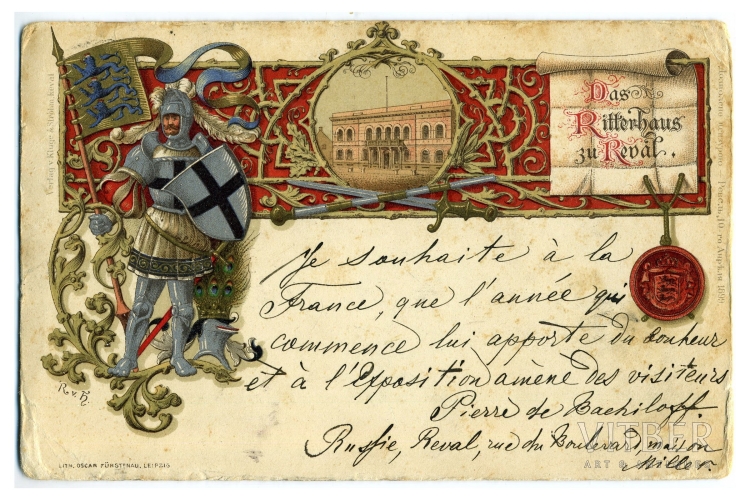 Das
Ritterhaus
zu Reval.
Je souhaite à la
France, que l'année qui
commence lui apporte du bonheur
et à l'Exposition amène des visiteurs
Pierre de Bachiloff.
Russie, Reval, rue du Boulevard, maison
Miller.
R. v. H.
LITH. OSCAR FÜRSTENAU, LEIPZIG
Verlag v. Kluge & Ströhm, Reval
Дозволено Цензурою
VITBER
ART &